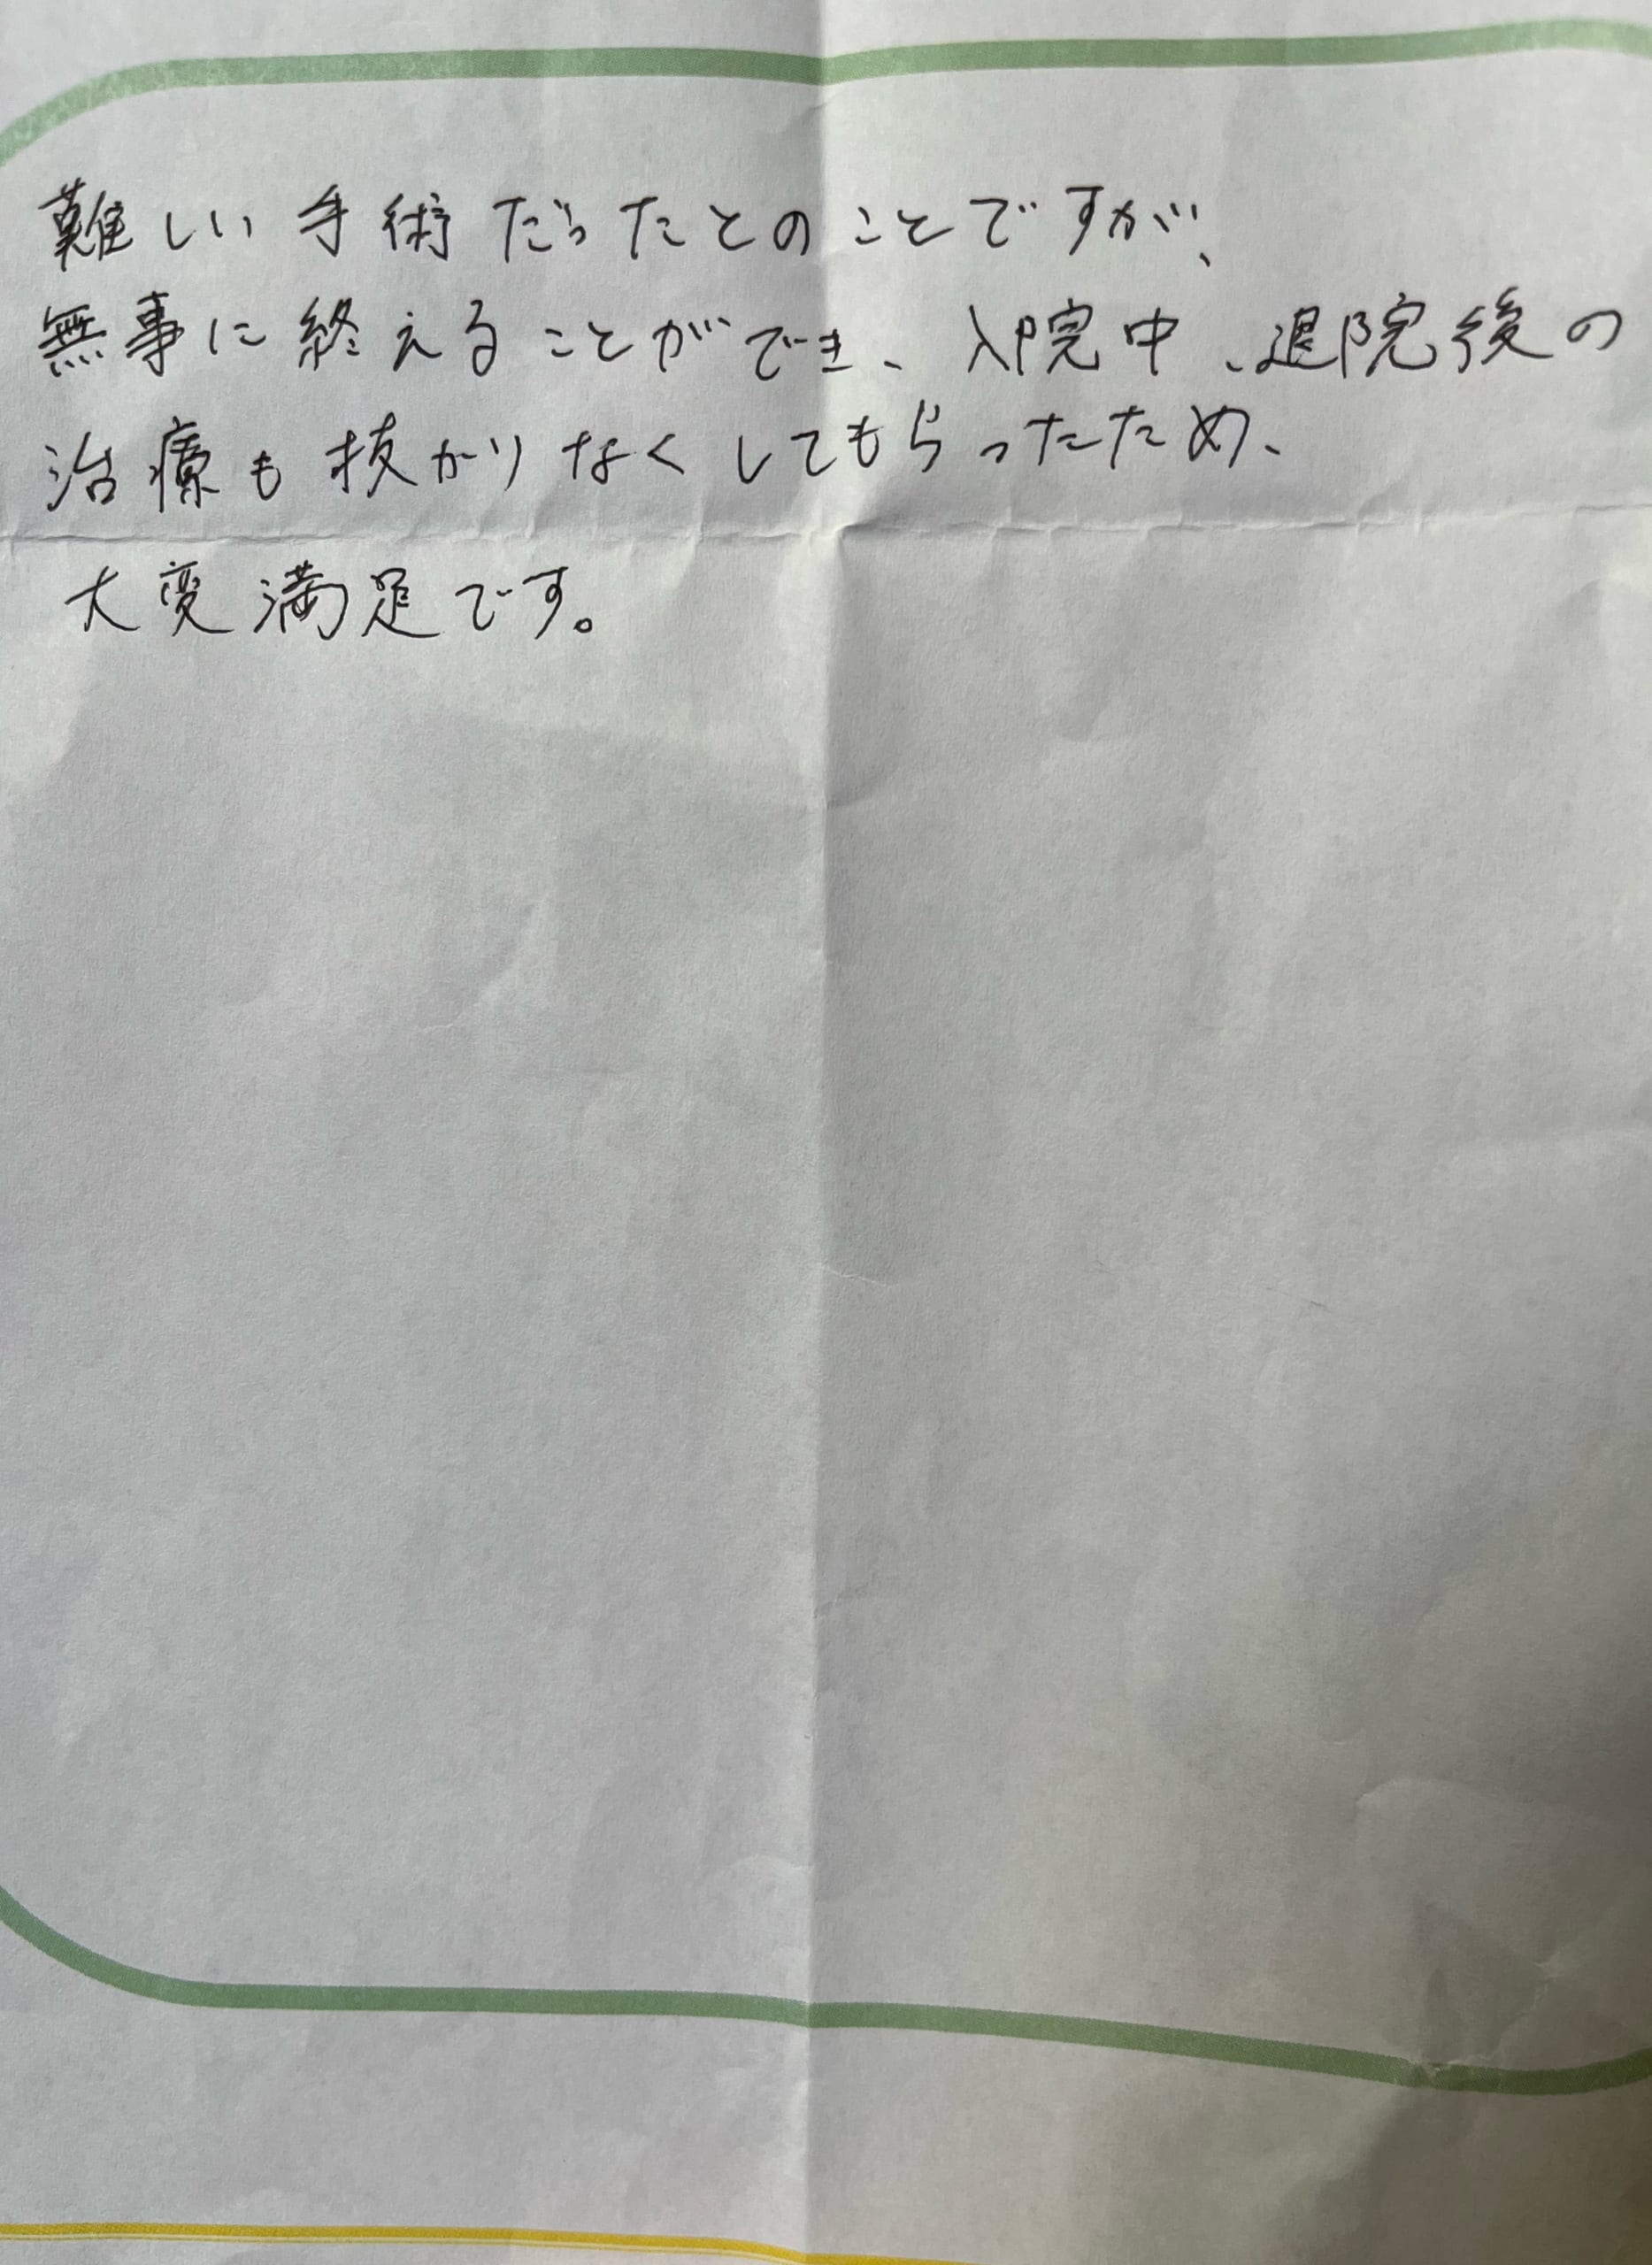 難しい手術だったとのことですが、
無事に終えることができ、入院中、退院後の
治療も抜かりなくしてもらったため、
大変満足です。